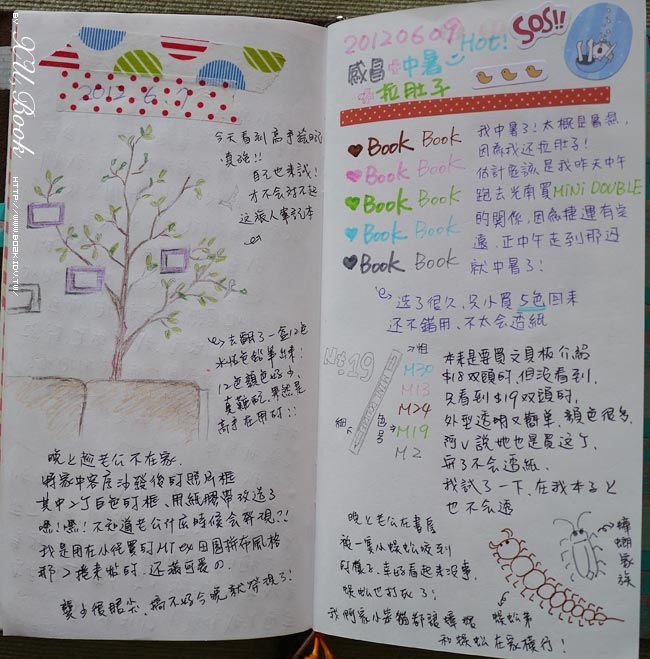 BY: XIU Book
HTTP://WWW.BOZK.IDV.TW/
2012.6.7
今天看到高手繪的
真強!!
自己也來試!
才不會對不起
這旅人筆記本
去翻了一盒12色
水性色鉛筆出來!
12色顏色好少,
真難配,果然是
高手在用的!!
晚上趁老公不在家,
將客中客房沙發後的照片框
其中2個白色的框、用紙膠帶改造了
嘿!嘿!不知道老公什麼時候會發現??
我是用在小佬買的MT ex田園拼布風格
那2捲來帖的,還滿可愛的.
雙子很眼尖、搞不好今晚就發現了!
20120609
Hot!
SOS!!
感冒+中暑
+拉肚子
Hot
Book Book
Book Book
Book Book
Book Book
Book Book
我中暑了!太概是暑熱,
因為我还拉肚子!
估計應該是我昨天中午
跑去光南買MiNi DOUBLE
的關係,因為捷運有些
遠,正中午走到那邊
就中暑了!
選了很久、只小買5色回來
还不錯用、不太会透紙
No.19
粗
細
色号
M30
M13
M24
M19
M2
本來是要買文具板介紹
$18双頭的,但沒看到,
只看到$19双頭的,
外型透明又簡單、顏色很多,
阿V說她也是買這个,
寫了不会透紙.
我試了一下、在我本子上
也不会透
晚上老公在書房
被一隻小蜈蚣咬到
的樣子、幸好看起來沒事,
蜈蚣也打死了!
我們家小柴貓都讓蟑螂
和蜈蚣在家橫行!
蟑螂家族
蜈蚣弟